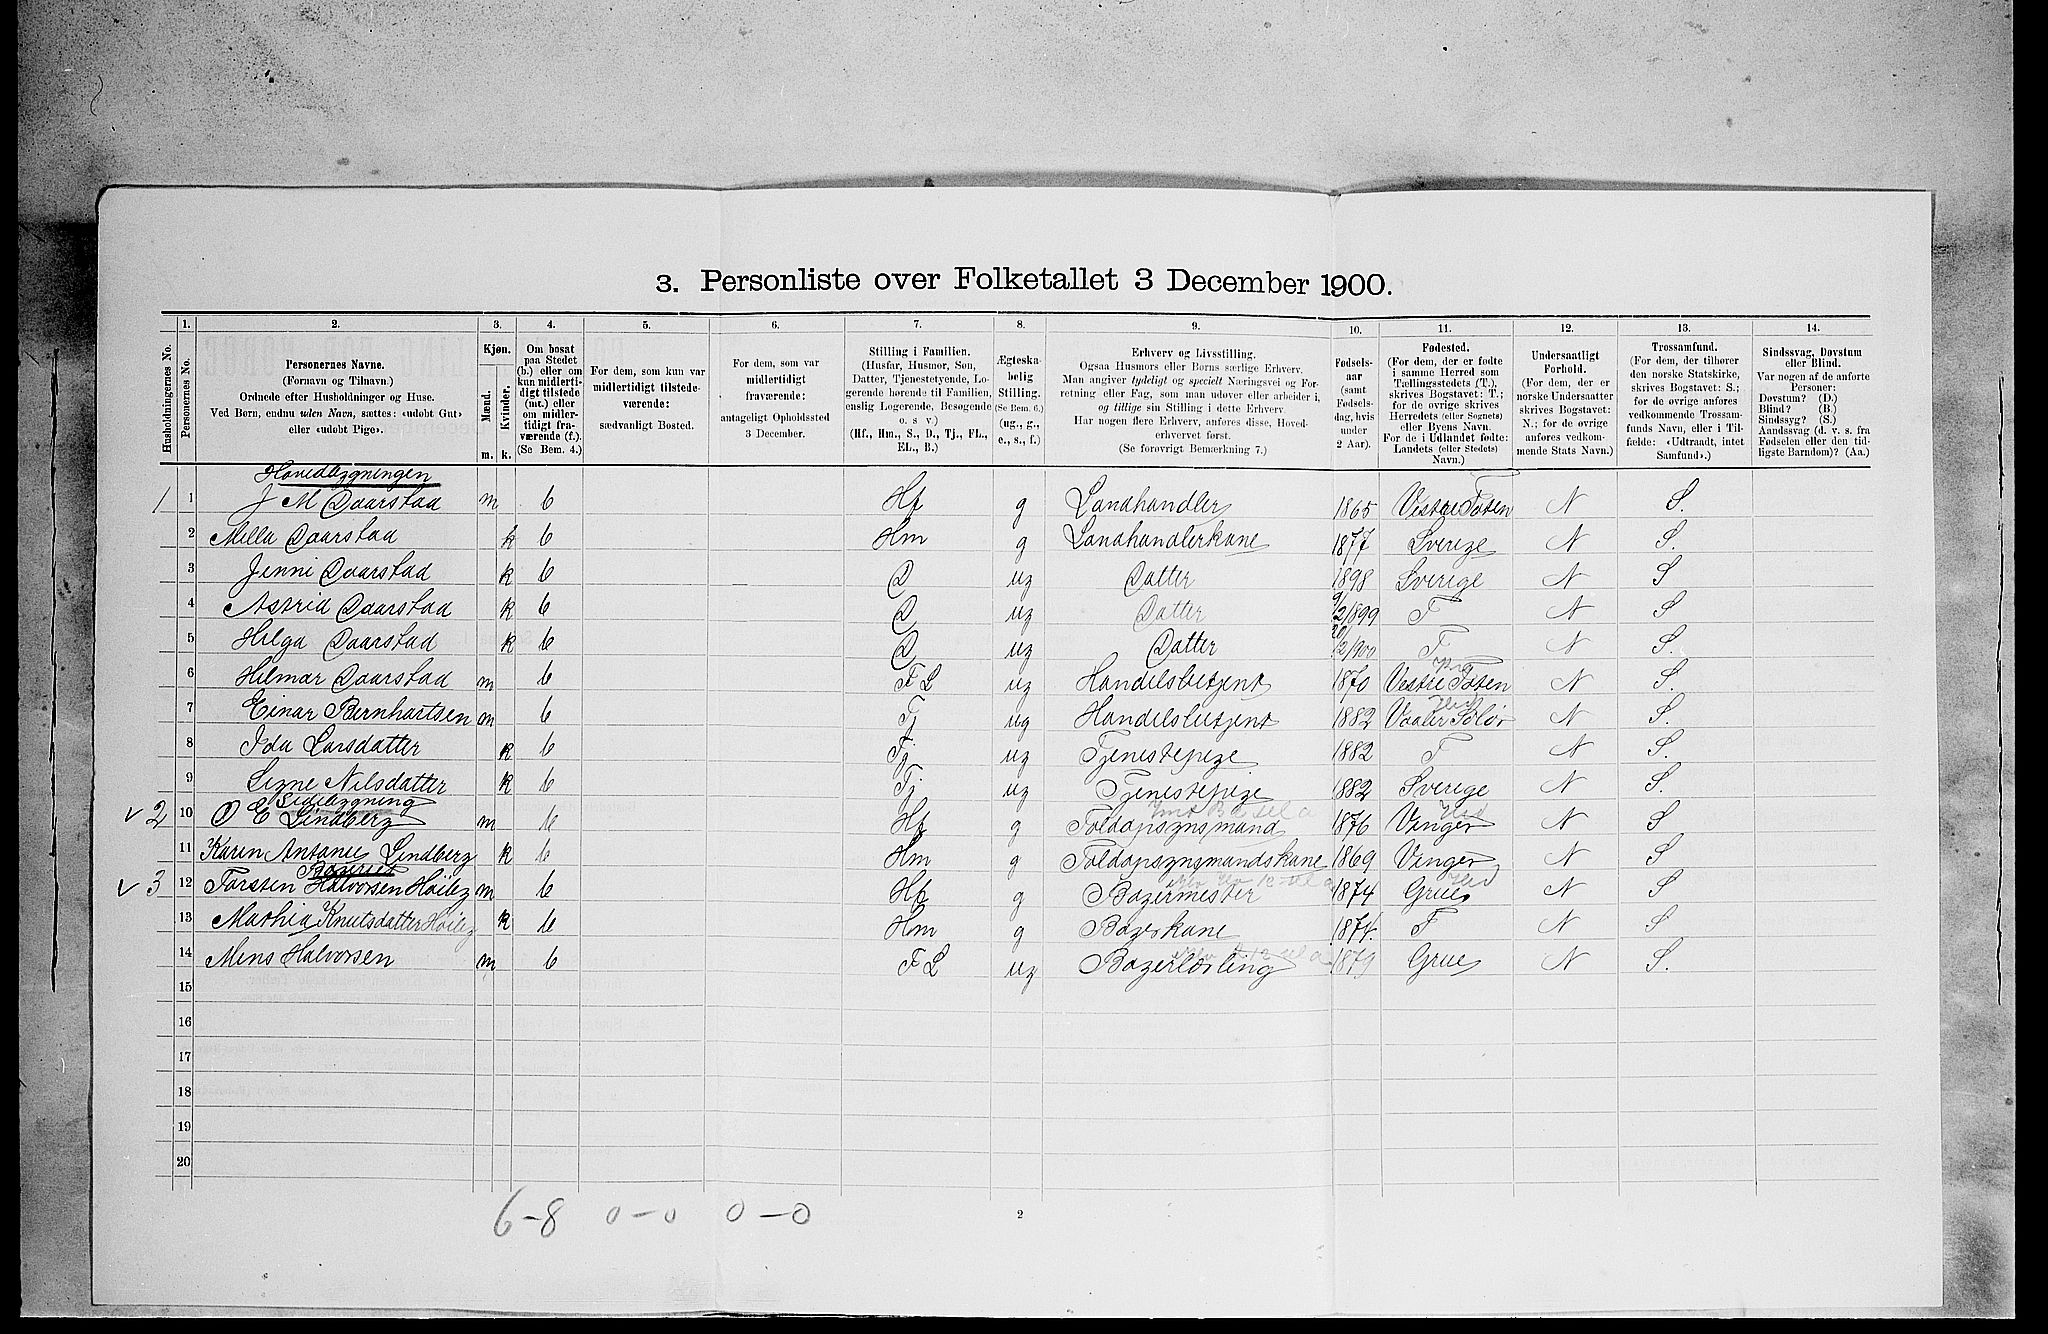 3. Personliste over Folketallet 3 December 1900.
1. 2. 3. 4. 5. 6. 7. 8. 9. 10. 11. 12. 13. 14.
Husholdningernes No.
Personernes No.
Personernes Navne.
(Fornavn og Tilnavn.)
Ordnede efter Husholdninger og Huse.
Ved Børn, endnu uden Navn, sættes: «udøbt Gut»
eller «udøbt Pige».
Kjøn.
Mænd.
Kvinder.
m. k.
Om bosat
paa Stedet
(b.) eller om
kun midlerti-
digt tilstede
(mt.) eller
om midler-
tidigt fra-
værende (f.).
(Se Bem. 4.)
For dem, som kun var
midlertidigt tilstede-
værende:
sædvanligt Bosted.
For dem, som var
midlertidigt
fraværende:
antageligt Opholdssted
3 December.
Stilling i Familien.
(Husfar, Husmor, Søn,
Datter, Tjenestetyende, Lo-
gerende hørende til Familien,
enslig Logerende, Besøgende
o. s. v.)
(Hf., Hm., S., D., Tj., FL.,
EL., B.)
Ægteska-
belig
Stilling.
(Se Bem. 6.)
(ug., g.,
e., s., f.)
Erhverv og Livsstilling.
Ogsaa Husmors eller Børns særlige Erhverv.
Man angiver tydeligt og specielt Næringsvei og For-
retning eller Fag, som man udøver eller arbeider i,
og tillige sin Stilling i dette Erhverv.
Har nogen flere Erhverv, anføres disse, Hoved-
erhvervet først.
(Se forøvrigt Bemærkning 7.)
Fødsels-
aar
(samt
Fødsels-
dag, hvis
under
2 Aar).
Fødested.
(For dem, der er fødte
i samme Herred som
Tællingsstedets (T.),
skrives Bogstavet: T.;
for de øvrige skrives
Herredets (eller Sognets)
eller Byens Navn.
For de i Udlandet fødte:
Landets (eller Stedets)
Navn.)
Undersaatligt
Forhold.
(For dem, der er
norske Undersaatter
skrives Bogstavet:
N.; for de øvrige
anføres vedkom-
mende Stats Navn.)
Trossamfund.
(For dem, der tilhører
den norske Statskirke,
skrives Bogstavet: S.;
for de øvrige anføres
vedkommende Trossam-
funds Navn, eller i Til-
fælde: «Udtraadt, intet
Samfund».)
Sindssvag, Døvstum
eller Blind.
Var nogen af de anførte
Personer:
Døvstum? (D.)
Blind? (B.)
Sindssyg? (S.)
Aandssvag (d. v. s. fra
Fødselen eller den tid-
ligste Barndom)? (Aa.)
Hovedbygningen
1 1 J M Daarstad m b Hf g Landhandler 1865 Vestre Toten N S.
2 Milla Daarstad k b Hm g Landhandlerkone 1877 Sverige N S.
3 Jenni Daarstad k b D ug Datter 1898 Sverige N S
4 Astrid Daarstad k b D ug Datter 9/2 1899 T N S
5 Helga Daarstad k b D ug Datter 20/2 1900 T N S.
6 Hilmar Daarstad m b FL ug Handelsbetjent 1870 Vestre Toten N S.
7 Einar Bernhartsen m b Tj ug Handelsbetjent 1882 Vaaler Solør N S.
8 Ida Larsdatter k b Tj ug Tjenestepige 1882 T N S.
9 Signe Nilsdatter k b Tj ug Tjenestepige 1882 Sverige N S.
Sidebygning
v 2 10 O E Lindberg m b Hf g Toldopsynsmand 1876 Vinger N S
11 Karen Antonie Lindberg k b Hm g Toldopsynsmandskone 1869 Vinger N S
Bageriet
v 3 12 Torsten Halvorsen Höileg m b Hf g Bagermester 1874 Grue N S
13 Mathia Knutsdatter Höileg k b Hm g Bagerkone 1874. T N S
14 Mens Halvorsen m b FL ug Bagerlærling 1879 Grue N S.
15
16
17
18
19
20
6-8 0-0 0-0
2